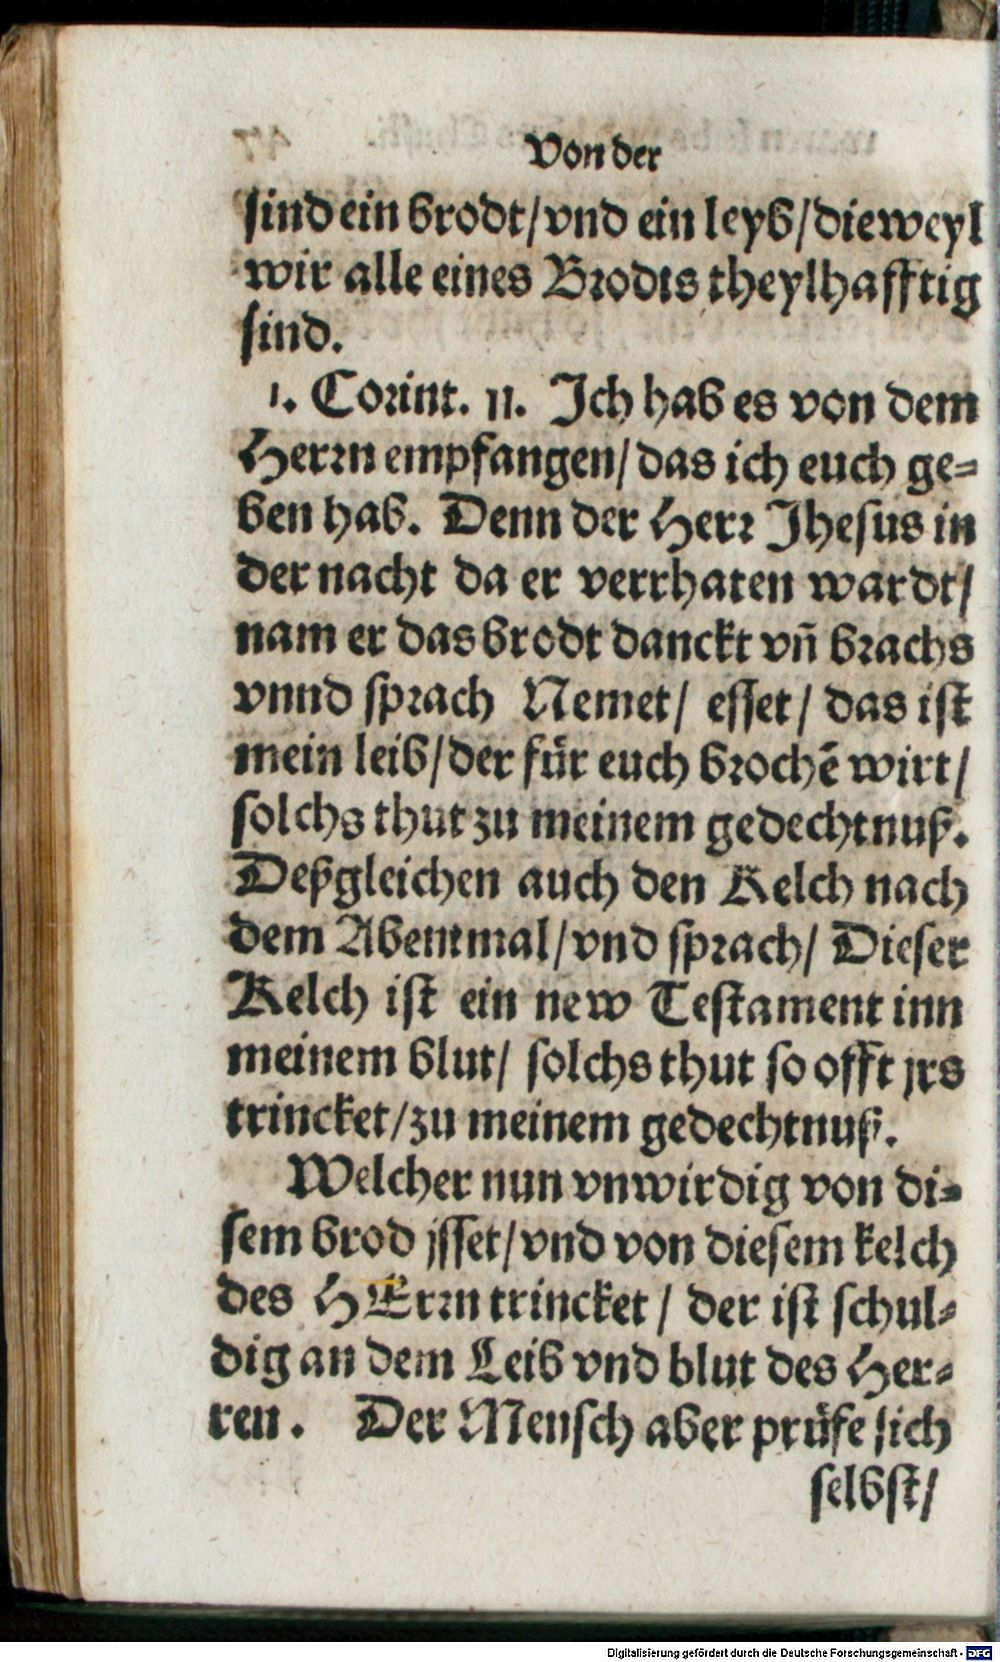 Von der
sind ein brodt/vnd ein leyb/dieweyl
wir alle eines Brodts theylhafftig
sind.
1. Corint. 11. Ich hab es von dem
Herrn empfangen/das ich euch ge=
ben hab. Denn der Herr Jhesus in
der nacht da er verrhaten wardt/
nam er das brodt danckt vñ brachs
vnnd sprach Nemet/ esset/ das ist
mein leib/der für euch brochẽ wirt/
solchs thut zu meinem gedechtnuß.
Deßgleichen auch den Kelch nach
dem Abentmal/vnd sprach/ Dieser
Kelch ist ein new Testament inn
meinem blut/ solchs thut so offt jrs
trincket/zu meinem gedechtnuß.
Welcher nun vnwirdig von di=
sem brod jsset/vnd von diesem kelch
des HErrn trincket/ der ist schul=
dig an dem Leib vnd blut des Her=
ren. Der Mensch aber prüfe sich
selbst/
Digitalisierung gefördert durch die Deutsche Forschungsgemeinschaft - DFG